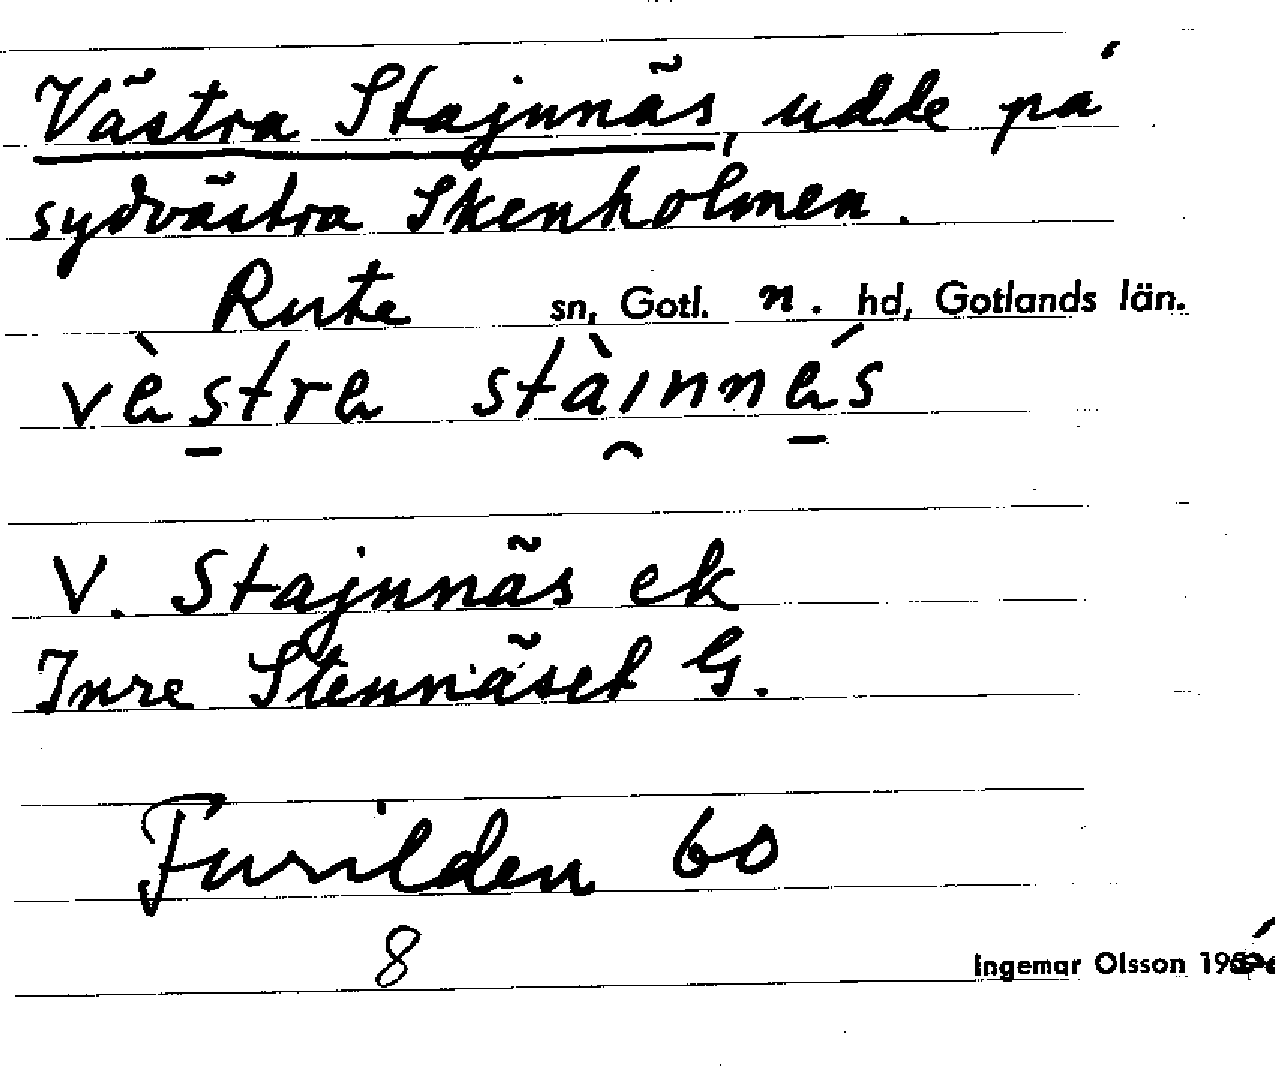 Västra Stajnnäs, udde på
sydvästra Skenholmen.
Rute sn, Gotl. n. hd, Gotlands län.
vèstre stàınnés
V. Stajnnäs ek
Inre Stennäset G.
Furilden 60
8
Ingemar Olsson